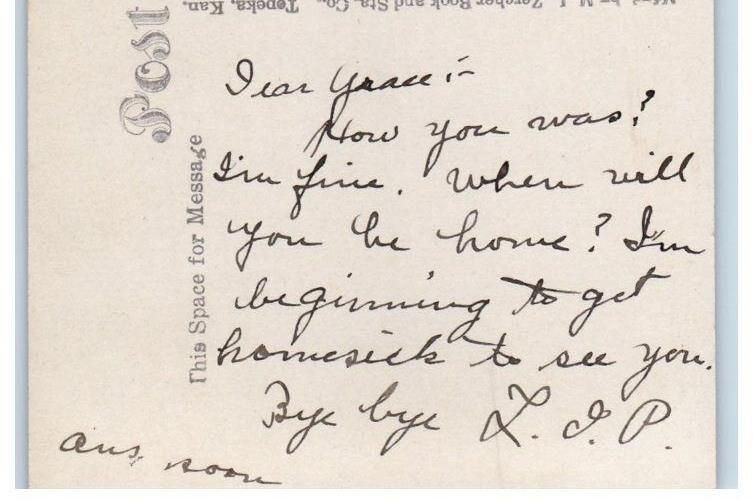 Mfrd. by M. L. Zercher Book and Sta. Co., Topeka, Kan.
Post
This Space for Message
Dear Grace:-
How you was?
I'm fine. When will
you be home? I'm
beginning to get
homesick to see you.
Bye bye L. I. P.
ans soon